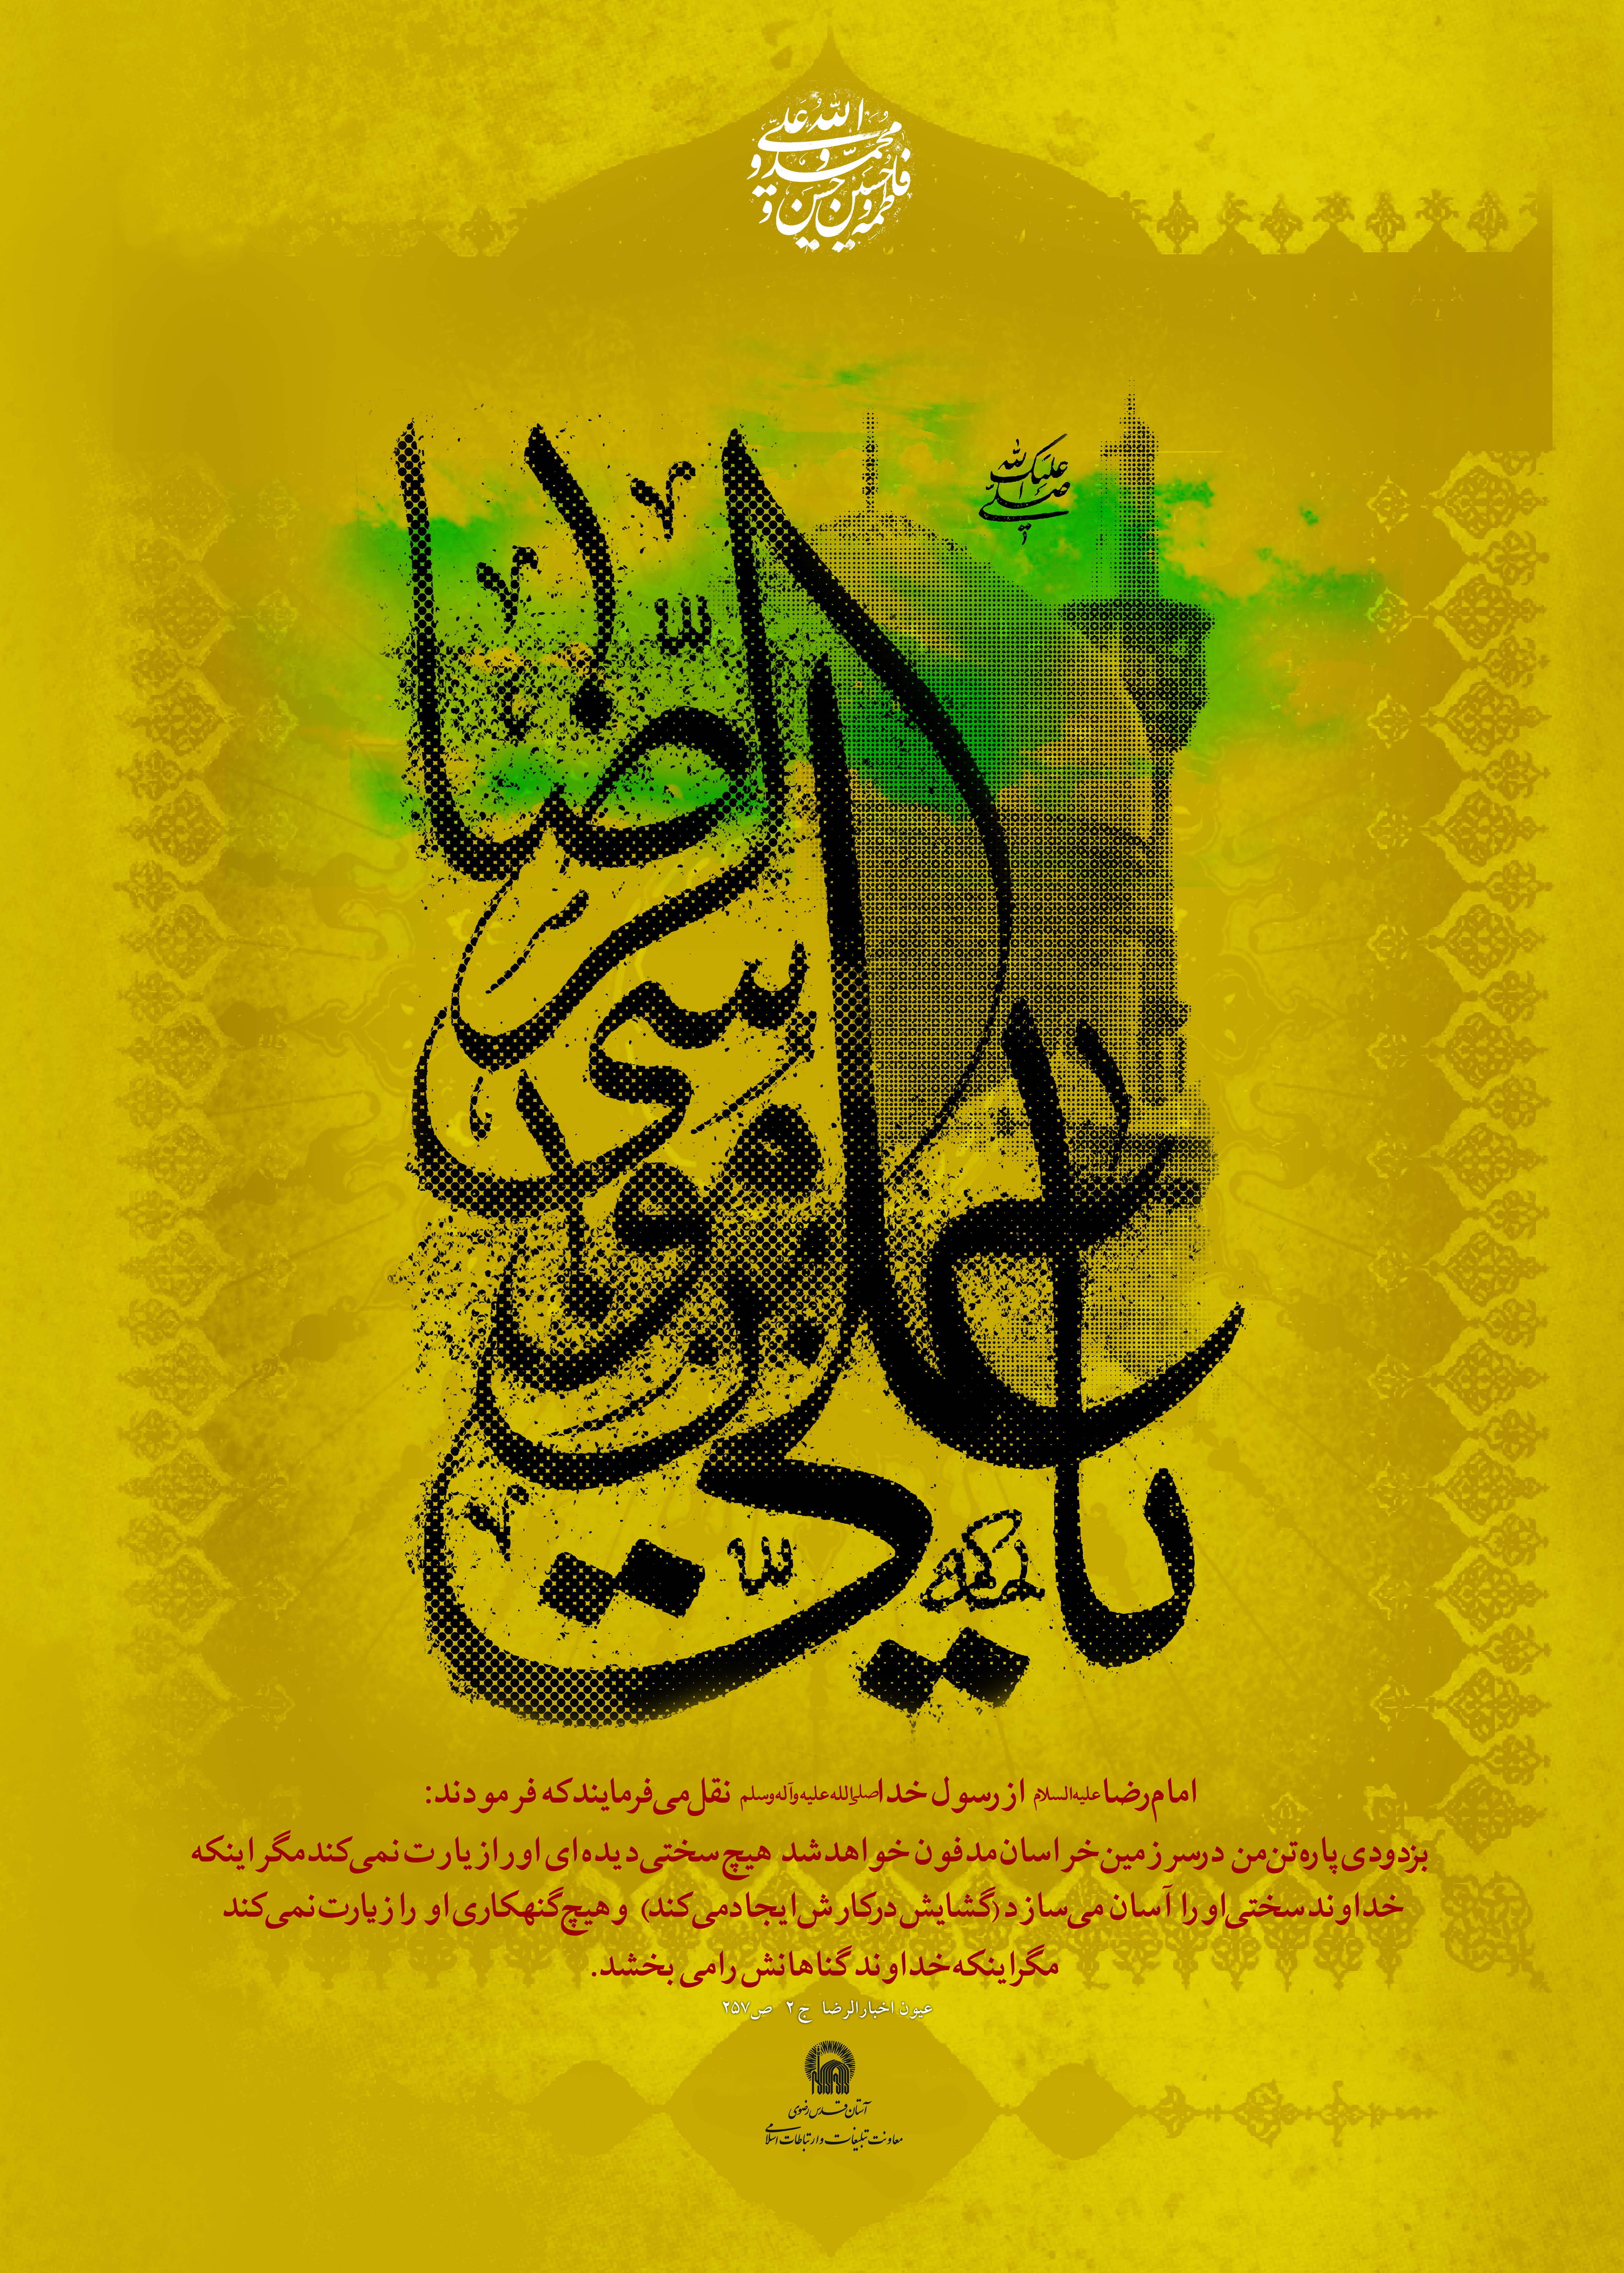 الله علی
محمد و و
فاطمه و حسین حسن و
صلی الله علیک
یا علی بن موسی الرضا
امام رضا علیه السلام از رسول خدا صلی الله علیه وآله وسلم نقل می فرمایند که فرمودند:
بزودی پاره تن من در سرزمین خراسان مدفون خواهد شد هیچ سختی دیده ای او را زیارت نمی کند مگر اینکه
خداوند سختی او را آسان می سازد (گشایش در کارش ایجاد می کند) و هیچ گنهکاری او را زیارت نمی کند
مگر اینکه خداوند گناهانش را می بخشد.
عیون اخبار الرضا ج ۲ ص ۲۵۷
آستان قدس رضوی
معاونت تبلیغات و ارتباطات اسلامی